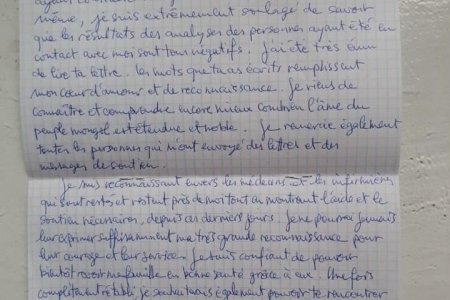 même, je suis extrêmement soulagé de savoir
que les résultats des analyses des personnes ayant été en
contact avec moi sont tous négatifs. J'ai été très ému
de lire ta lettre. Les mots que tu as écrits remplissent
mon cœur d'amour et de reconnaissance. Je viens de
connaître et comprendre encore mieux combien l'âme du
peuple mongol est étendue et noble. Je remercie également
toutes les personnes qui m'ont envoyé des lettres et des
messages de soutien.
Je suis reconnaissant envers les médecins et les infirmières
qui sont restés et restent près de moi tout en montrant l'aide et le
soutien nécessaires, depuis ces derniers jours. Je ne pourrai jamais
leur exprimer suffisamment ma très grande reconnaissance pour
leur courage et leur service. Je suis confiant de pouvoir
bientôt revoir ma famille en bonne santé grâce à eux. Une fois
complètement rétabli, je souhaiterais également pouvoir te rencontrer